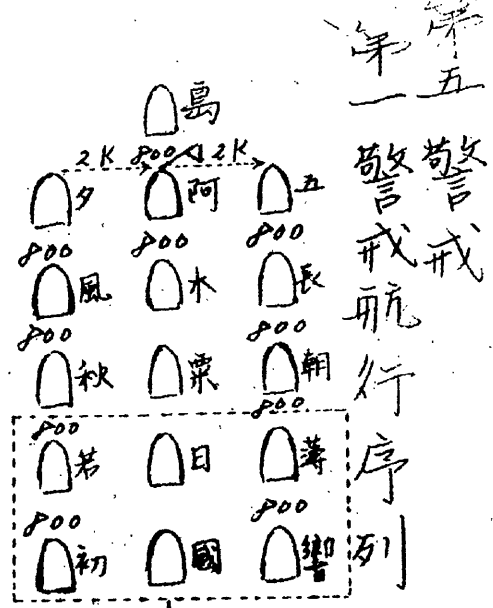 第五警戒
第一警戒航行序列
島
2K 800 2K
夕 阿 五
800 800 800
風 水 長
800 800
秋 粟 朝
800 800
若 日 薄
800 800
初 國 響